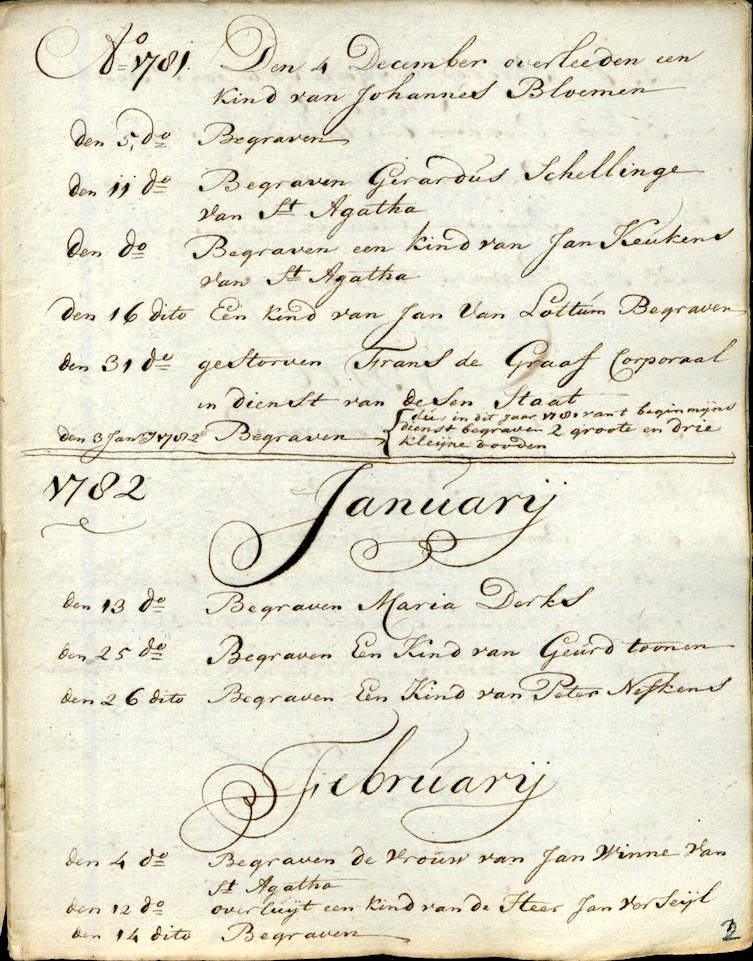 No 1781. Den 4 December overleeden een
kind van Johannes Bloemen
den 5, do Begraven
den 11 do Begraven Girardus Schellinge
van St Agatha
den do Begraven een kind van Jan Keukens
van St Agatha
den 16 dito Een kind van Jan Van Lottum Begraven
den 31 do gestorven Frans de Graaf Corporaal
in dienst van desen Staat
den 3 Janry 1782 Begraven
dus in dit jaar 1781 van t begin mijns
dienst begraven 2 groote en drie
kleijne dooden
1782 Januarij
den 13 do Begraven Maria Derks
den 25 do Begraven Een Kind van Geurd toonen
den 26 dito Begraven Een Kind van Peter Nefkens
Februarij
den 4 do Begraven de vrouw van Jan Winne van
St Agatha
den 12 do overluijt een kind van de Heer Jan verSeijl
den 14 dito Begraven
2